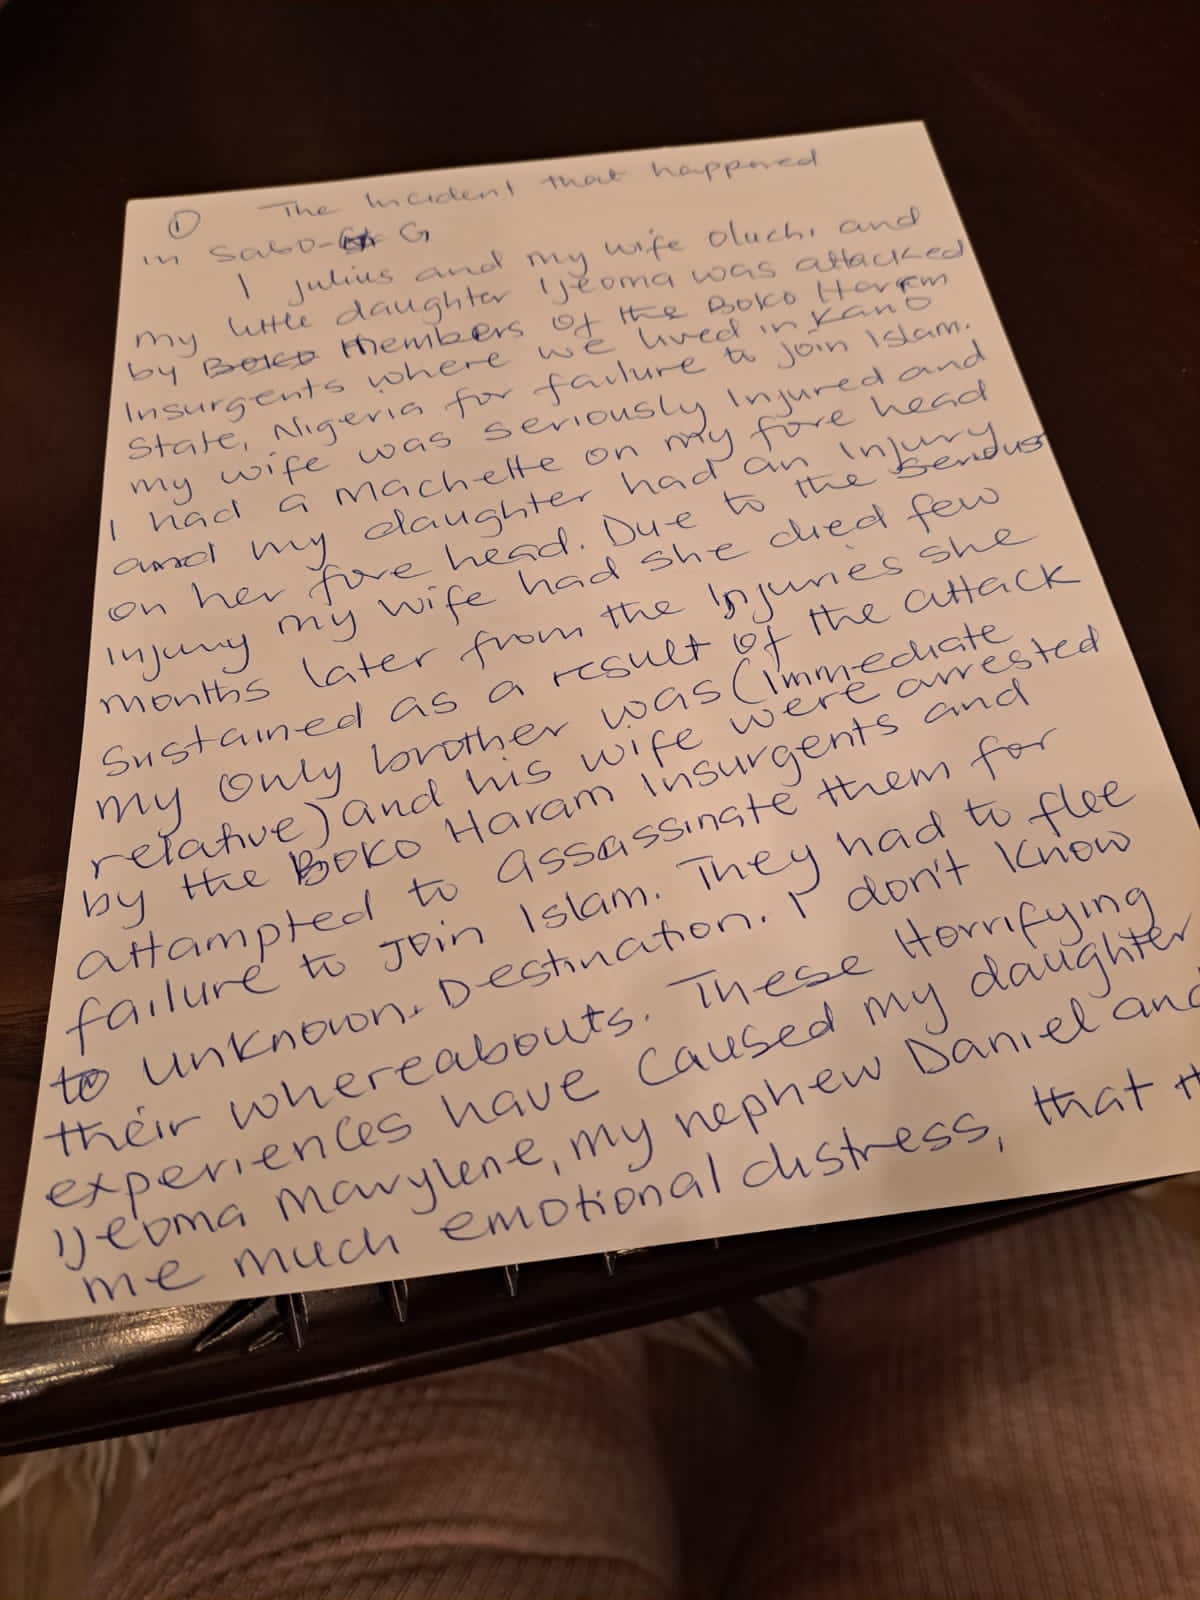 ① The Incident that happened
in Sabo-G
I Julius and my wife Oluchi and
my little daughter Ijeoma was attacked
by Boko Members of the Boko Harem
Insurgents where we lived in Kano
State, Nigeria for failure to join Islam.
my wife was seriously Injured and
I had a machette on my fore head
and my daughter had an Injury
on her fore head. Due to the serious
injury my wife had she died few
months later from the Injuries she
Sustained as a result of the attack
my only brother was (Immediate
relative) and his wife were arrested
by the Boko Haram Insurgents and
attampted to assassinate them for
failure to Join Islam. They had to flee
to unknown. Destination. I don't know
their whereabouts. These Horrifying
experiences have caused my daughter
Ijeoma Marylene, my nephew Daniel and
me much emotional distress, that